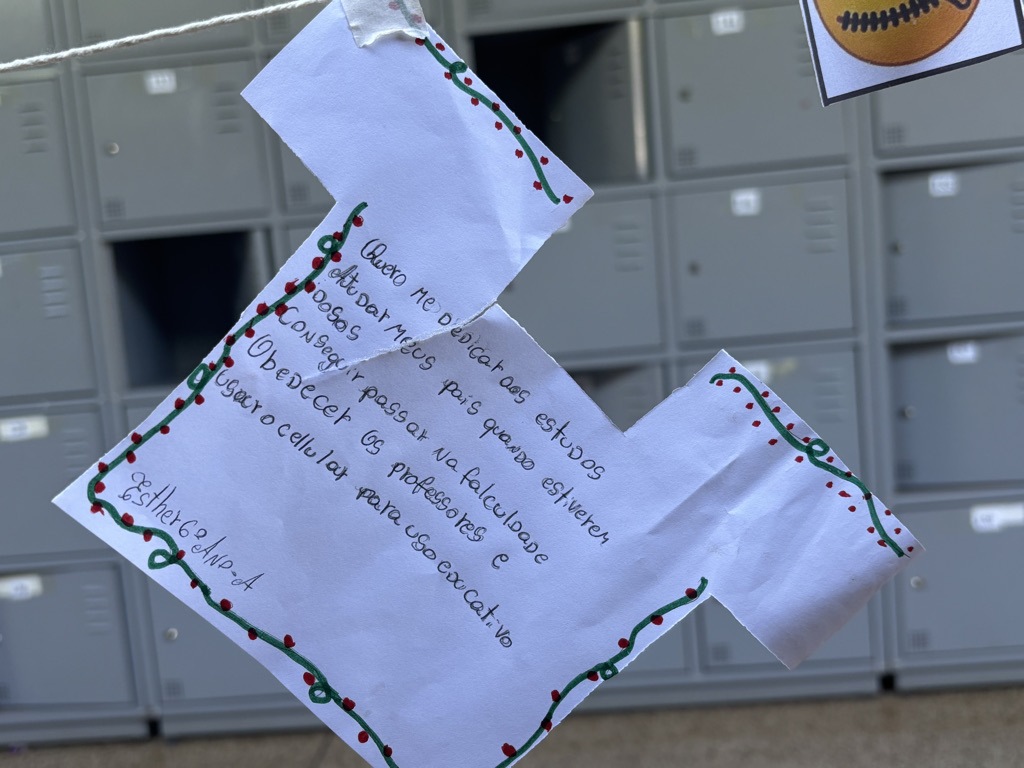 Quero me dedicar aos estudos
Ajudar meus pais quando estiverem
idosos
Conseguir passar na falculdade
Obedecer os professores e
usar o cellular para uso exucativo
Esther 6º Ano-A